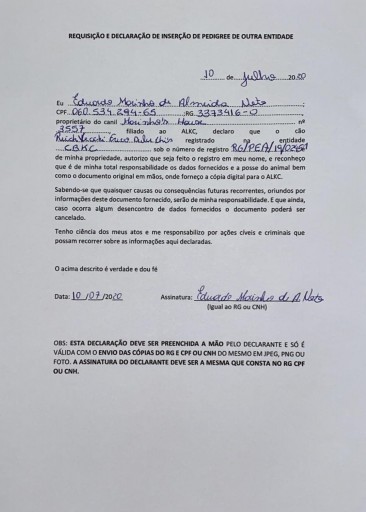 REQUISIÇÃO E DECLARAÇÃO DE INSERÇÃO DE PEDIGREE DE OUTRA ENTIDADE
10 de Julho 2020
Eu Eduardo Marinho de Almeida Neto
CPF 060.534.294-65 RG 3373416-0
proprietário do canil Marinho's House nº
3557, filiado ao ALKC, declaro que o cão
registrado na entidade
CBKC sob o número de registro RG/PEA/19/
de minha propriedade, autorizo que seja feito o registro em meu nome, e reconheço
que é de minha total responsabilidade os dados fornecidos e a posse do animal bem
como o documento original em mãos, onde forneço a cópia digital para o ALKC.
Sabendo-se que quaisquer causas ou consequências futuras recorrentes, oriundos por
informações deste documento fornecido, serão de minha responsabilidade. E que ainda,
caso ocorra algum desencontro de dados fornecidos o documento poderá ser
cancelado.
Tenho ciência dos meus atos e me responsabilizo por ações cíveis e criminais que
possam recorrer sobre as informações aqui declaradas.
O acima descrito é verdade e dou fé
Data: 10/07/2020 Assinatura: Eduardo Marinho de A. Neto
(Igual ao RG ou CNH)
OBS: ESTA DECLARAÇÃO DEVE SER PREENCHIDA A MÃO PELO DECLARANTE E SÓ É
VÁLIDA COM O ENVIO DAS CÓPIAS DO RG E CPF OU CNH DO MESMO EM JPEG, PNG OU
FOTO. A ASSINATURA DO DECLARANTE DEVE SER A MESMA QUE CONSTA NO RG CPF
OU CNH.